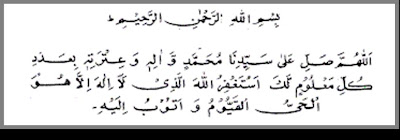 بِسْمِ اللهِ الرَّحْمٰنِ الرَّحِيْمِ ط
اَللّٰهُمَّ صَلِّ عَلٰى سَيِّدِنَا مُحَمَّدٍ وَّ اٰلِهٖ وَ عِتْرَتِهٖ بِعَدَدِ
كُلِّ مَعْلُوْمٍ لَّكَ اَسْتَغْفِرُ اللهَ الَّذِىْ لَآ اِلٰهَ اِلَّا هُوَ
الْحَىُّ الْقَيُّوْمُ وَ اَتُوْبُ اِلَيْهِ۔